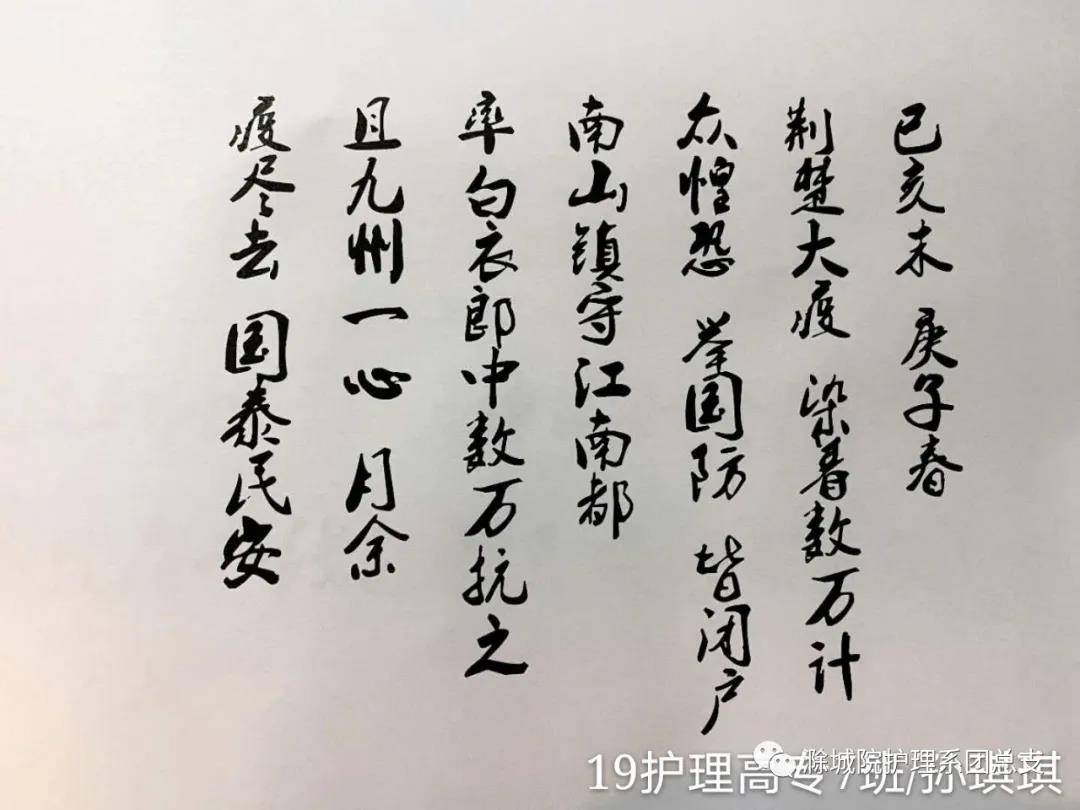 已亥末 庚子春
荆楚大疫 染着数万计
众惶恐 举国防 皆闭户
南山镇守江南都
率白衣郎中数万抗之
且九州一心 月余
疫尽去 国泰民安
滁城院护理系团总支
19护理高专7班/孙琪琪